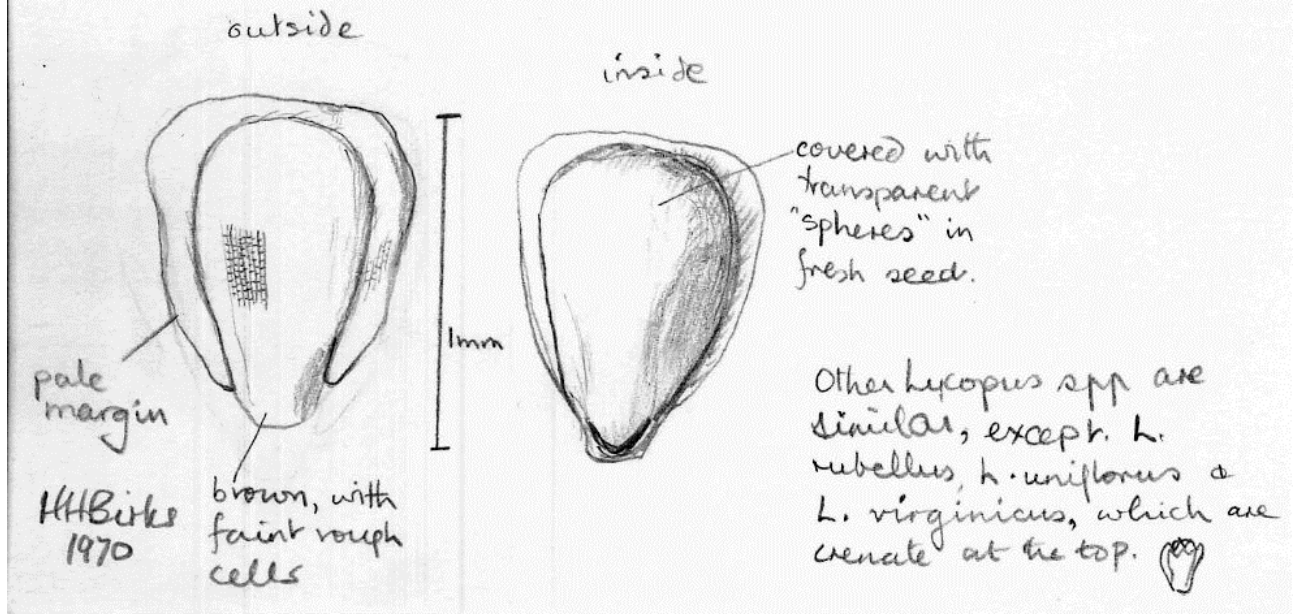 outside
inside
covered with
transparent
"spheres" in
fresh seed.
1mm
pale
margin
brown, with
faint rough
cells
HHBirks
1970
Other Lycopus spp are
similar, except. L.
rubellus, L. uniflorus &
L. virginicus, which are
crenate at the top.